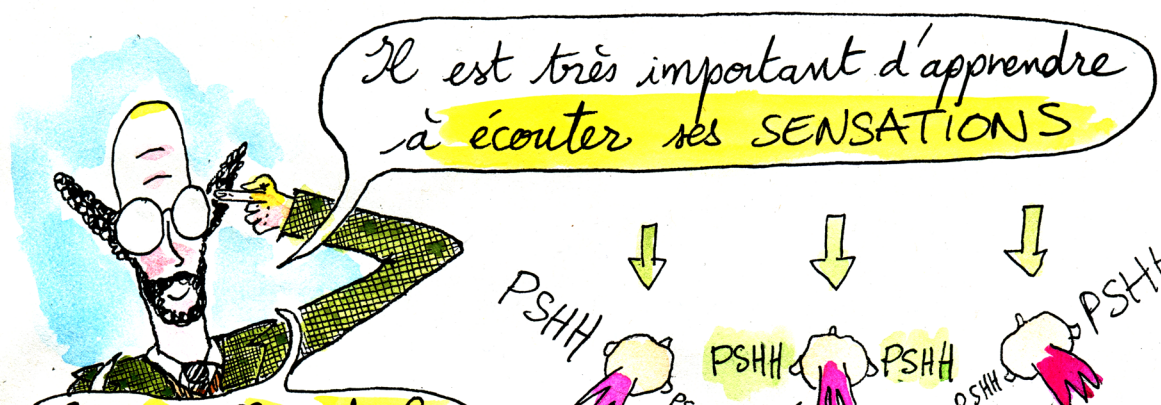 Il est très important d'apprendre
à écouter ses SENSATIONS
PSHH
PSHH
PSHH
PSHH
PSHH